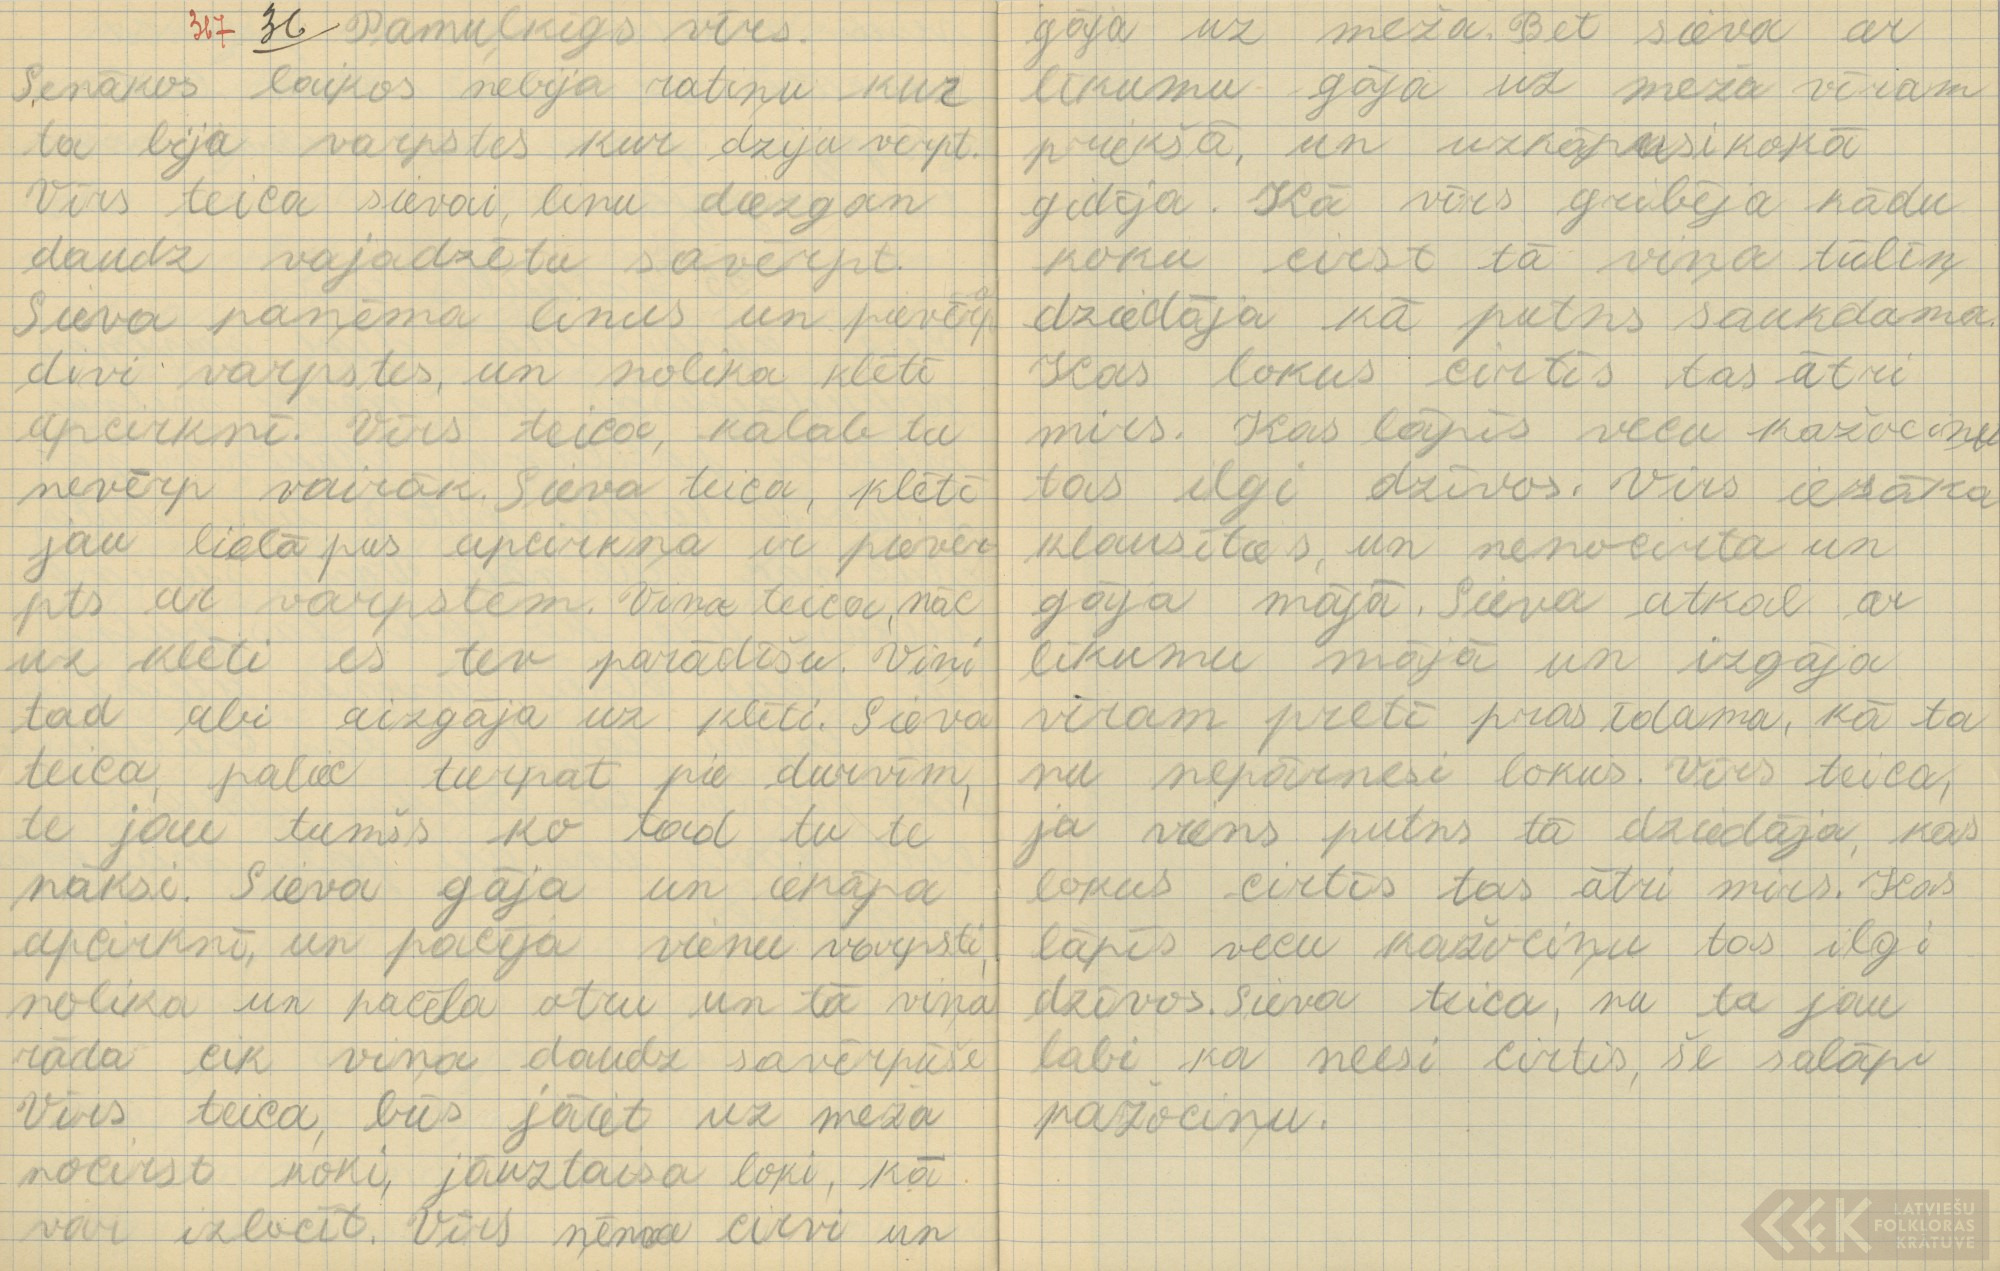 367 36 Pamuļķīgs vīrs.
Senākos laikos nebija ratiņu kur
ta bija varpstes kur dziju vērpt.
Vīrs teica sievai, linu diezgan
daudz vajadzētu savērpt.
Sieva paņēma linus un pievērp
divi varpstes, un nolika klētī
apcirknī. Vīrs teica, kālab tu
nevērp vairāk. Sieva teica, klētī
jau lielā pus apcirkņa ir pievēr
pts ar varpstēm. Viņa teica, nāc
uz klēti es tev parādīšu. Viņi
tad abi aizgāja uz klēti. Sieva
teica, paliec turpat pie durvīm,
te jau tumšs ko tad tu te
nāksi. Sieva gāja un iekāpa
apcirknī, un pacēja vienu varpsti,
nolika un pacēla otru un tā viņa
rāda cik viņa daudz savērpuse
Vīrs teica, būs jāiet uz meža
nocirst koki, jāuztaisa loki, kā
var izlocīt. Vīrs ņēma cirvi un
gāja uz meža. Bet sieva ar
līkumu gāja uz meža vīram
priekšā, un uzkāpusi kokā
gidēja. Kā vīrs gribēja kādu
koku cirst tā viņa tūliņ
dziedāja kā putns saukdama.
Kas lokus cirtīs tas ātri
mirs. Kas lāpīs vecu kažociņu
tas ilgi dzīvos. Vīrs iesāka
klausīties, un nenocirta un
gāja mājā. Sieva atkal ar
līkumu mājā un izgāja
vīram pretī prasīdama, kā ta
nu nepārnesi lokus. Vīrs teica,
ja viens putns tā dziedāja, kas
lokus cirtīs tas ātri mirs. Kas
lāpīs vecu kažociņu tas ilgi
dzīvos. Sieva teica, nu ta jau
labi ka neesi cirtis, še salāpi
pažociņu.
LATVIEŠU
FOLKLORAS
KRĀTUVE